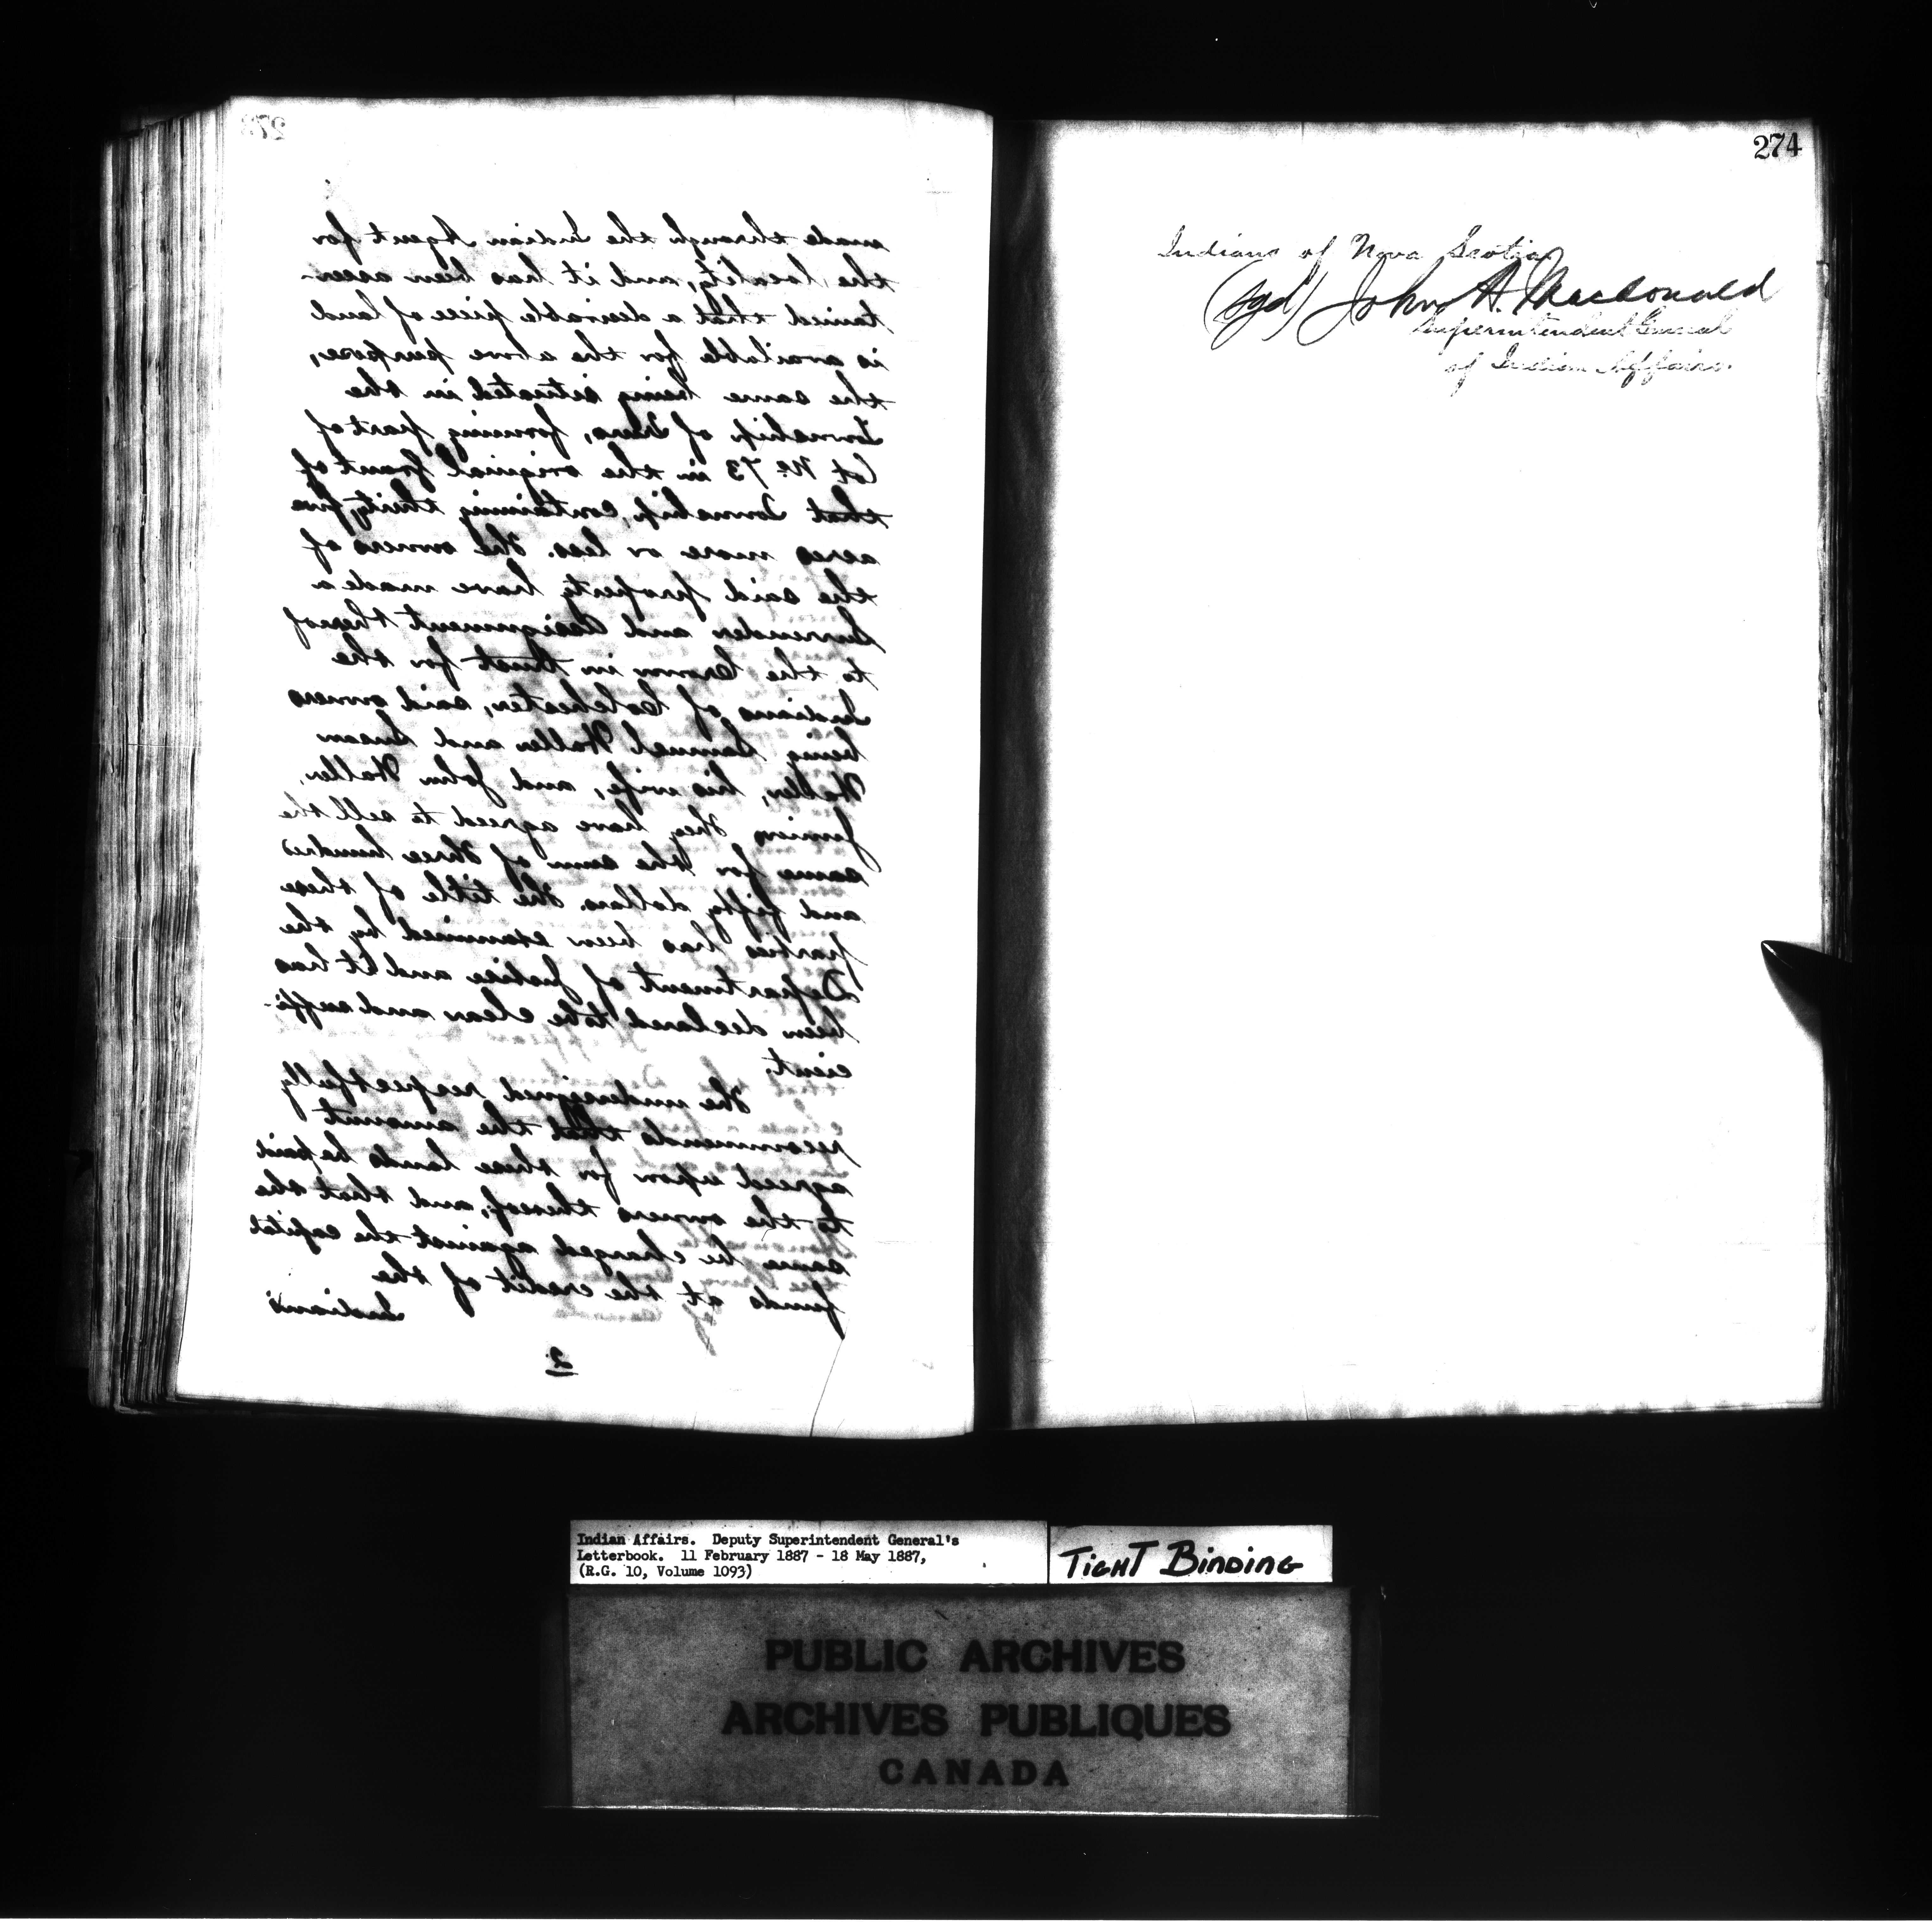 273
made through the Indian Agent for
the locality, and it has been ascer-
tained that a desirable piece of land
is available for the above purpose,
the same being situated in the
Township of Truro, forming part of
Lot No. 73 in the original Grant of
that Township, containing thirty five
acres more or less. The owners of
the said property have made a
Surrender and Assignment thereof
to the Crown in trust for the
Indians of Colchester, said owners
being Samuel Waller and Susan
Waller, his wife, and John Waller,
Junior. They have agreed to sell the
same for the sum of three hundred
and fifty dollars. The title of these
parties has been examined by the
Department of Justice and it has
been declared to be clear and suffi-
cient.
The undersigned respectfully
recommends that the amount
agreed upon for these lands be paid
to the owners thereof, and that the
same be charged against the capital
funds at the credit of the
Indians
2
274
Indians of Nova Scotia
(sgd) John A. Macdonald
Superintendent General
of Indian Affairs.
Indian Affairs. Deputy Superintendent General's
Letterbook. 11 February 1887 - 18 May 1887,
(R.G. 10, Volume 1093)
TIGHT BINDING
PUBLIC ARCHIVES
ARCHIVES PUBLIQUES
CANADA